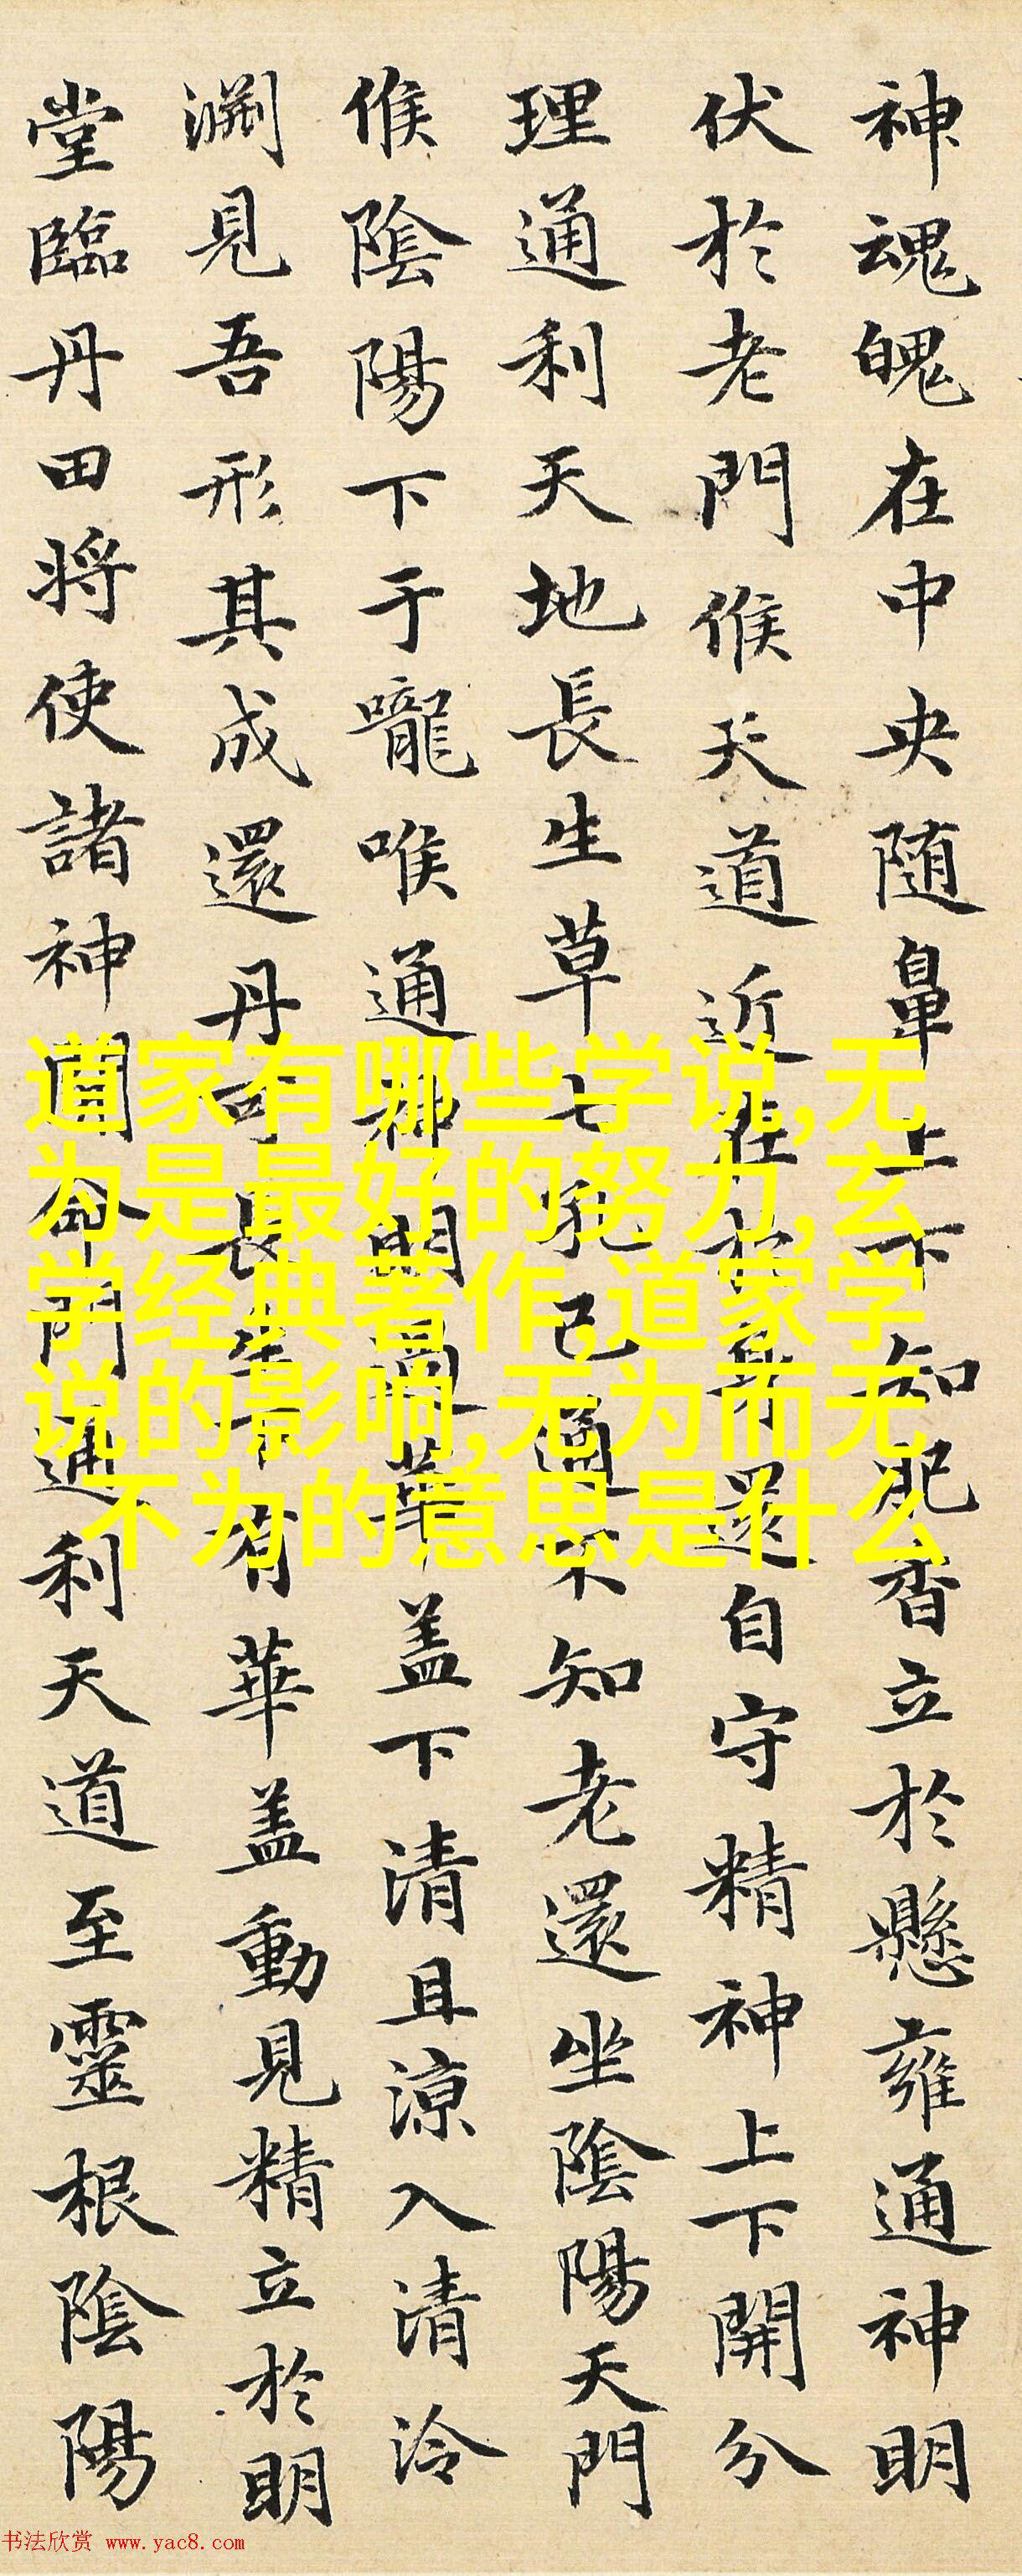 神魂魄在中央随鼻上下知肥香立於懸雍通神明
伏於老門候天道近在於身還自守精神上下開分
理通利天地長生草七孔已通不知老還坐陰陽天門
候陰陽下于嚨喉通神明過華盖下清且涼入清泠
渊見吾形其成還丹可長生下有華盖動見精立於明
堂臨丹田将使諸神開命門通利天道至靈根陰陽
道家有哪些学说,无
为是最好的努力,玄
学经典著作,道家学
说的影响,无为而无
不为的意思是什么
书法欣赏 www.yac8.com